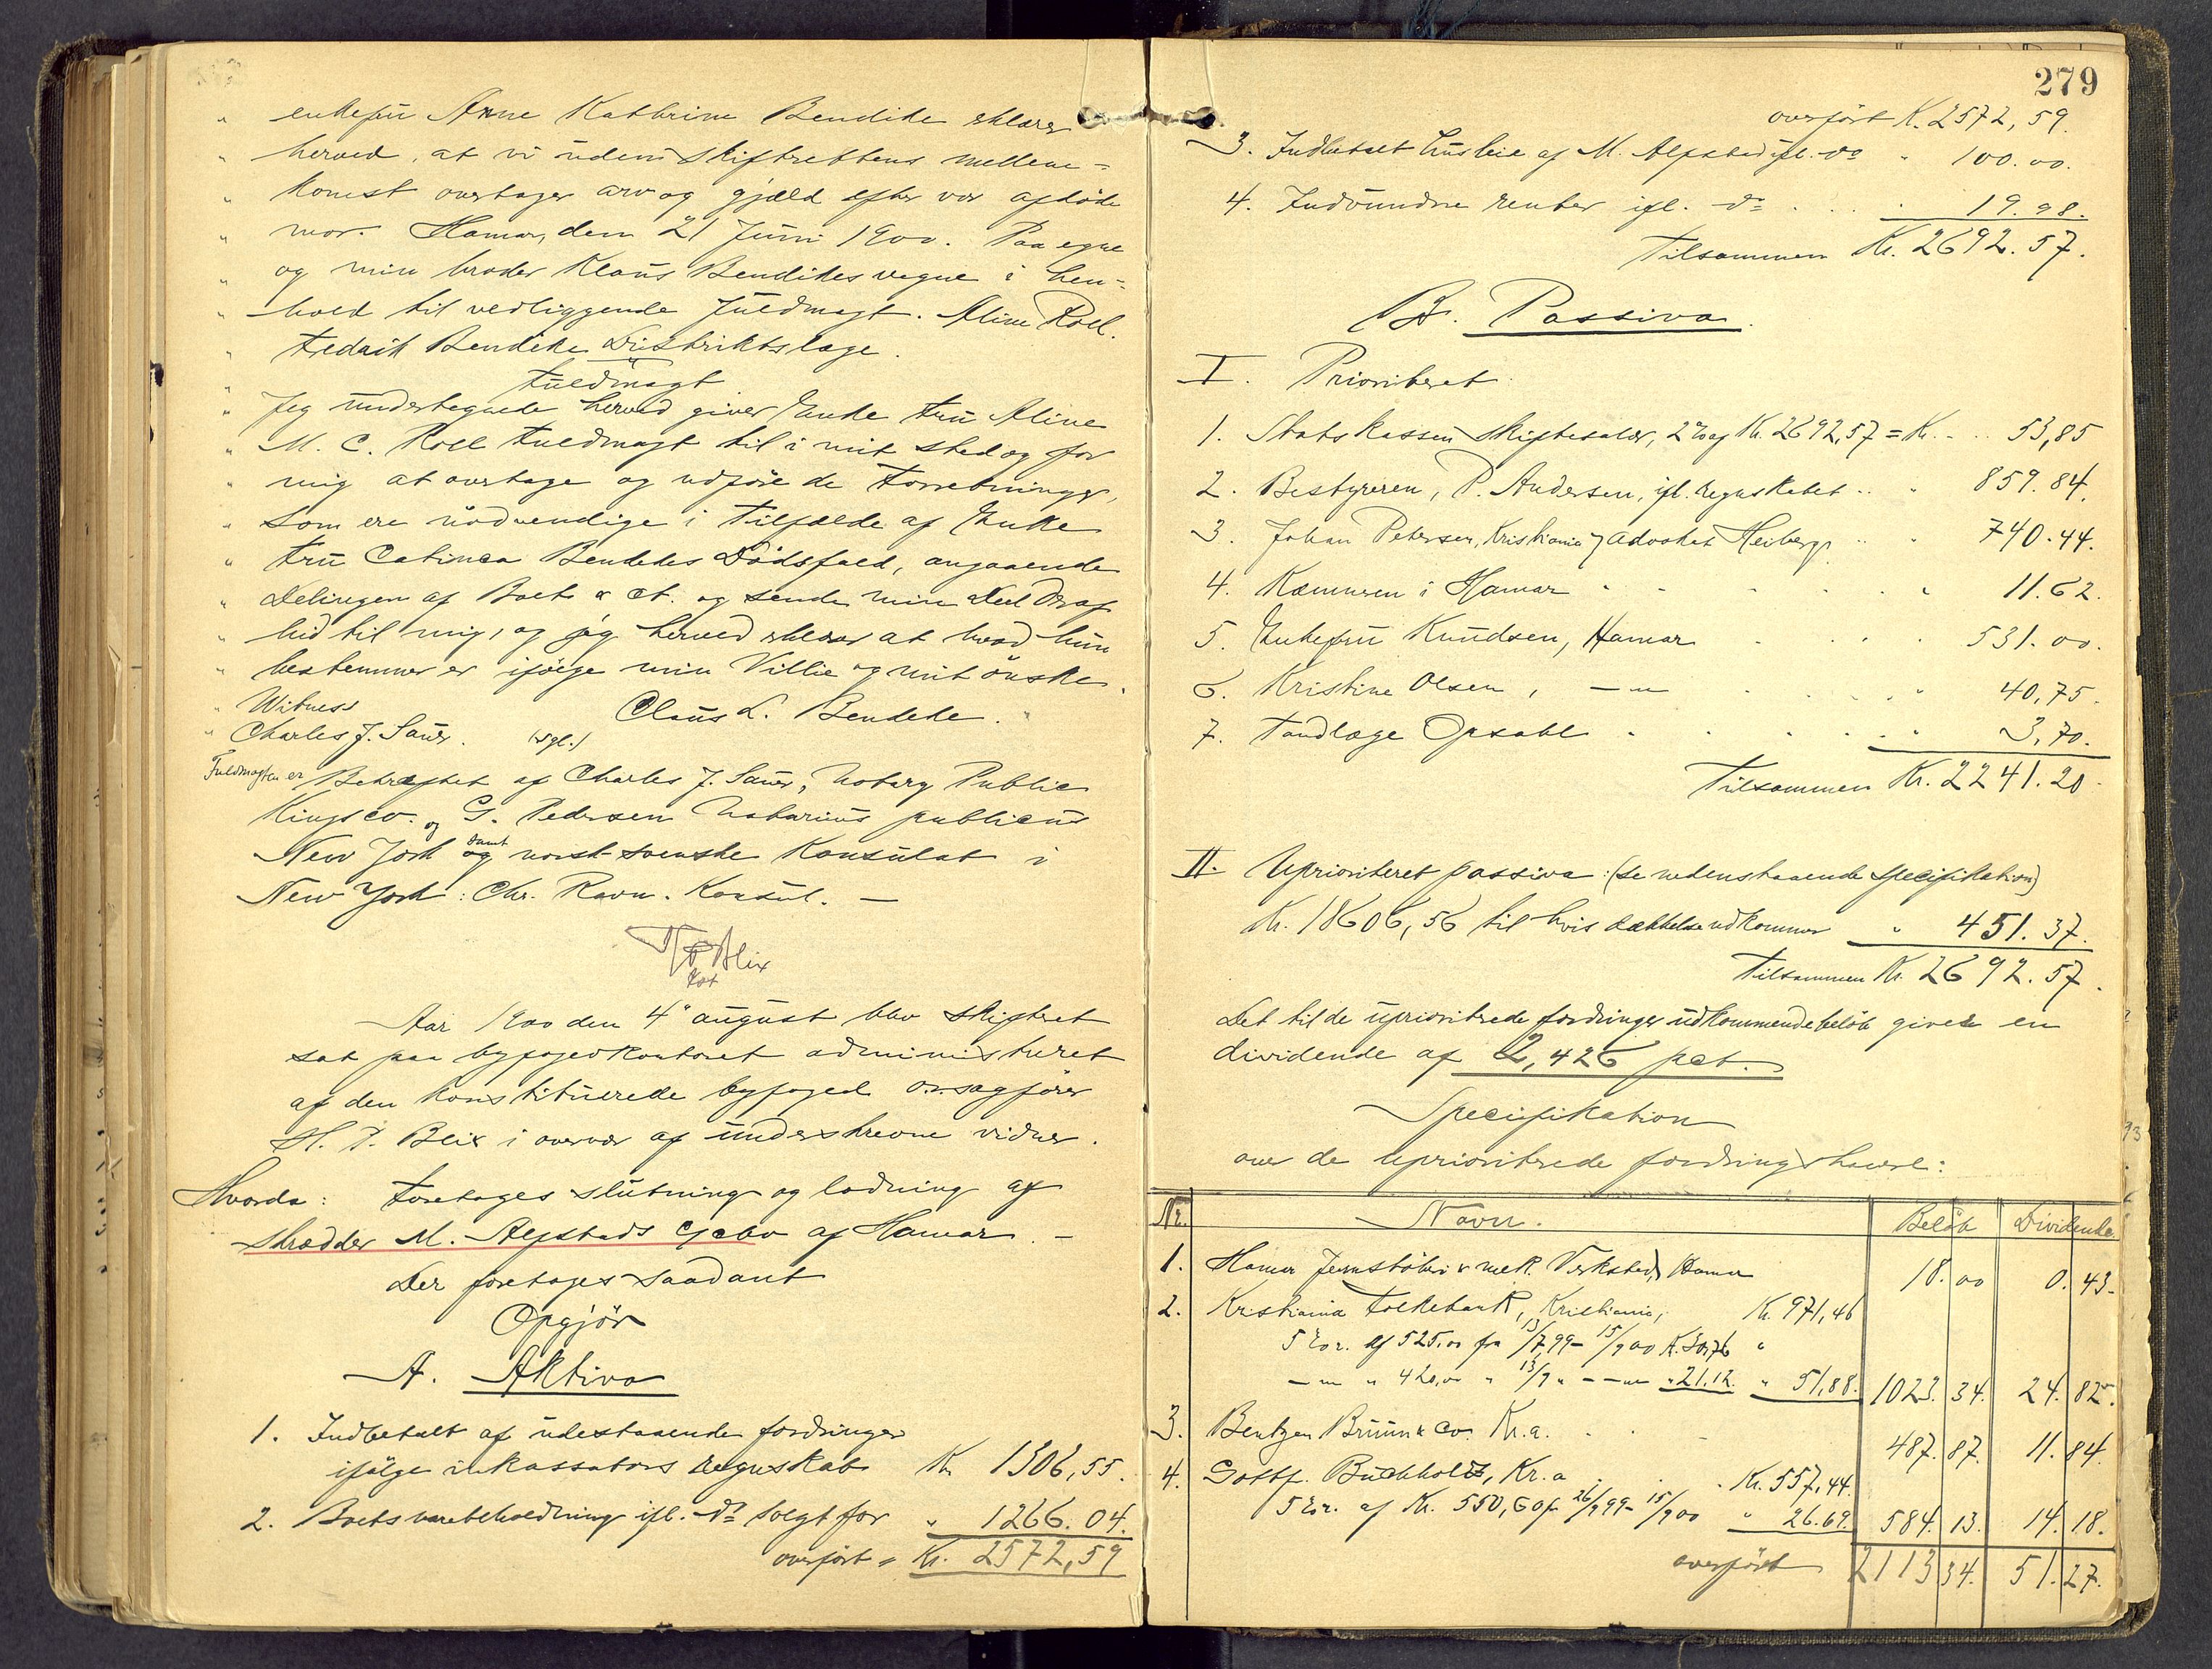 " enkefru Anne Kathrine Bendike erklærer
" herved, at vi uden skifterettens mellem=
" komst overtager arv og gjæld efter vor afdöde
" mor. Hamar, den 21 Juni 1900. Paa egne
" og min broder Klaus Bendikes vegne i hen=
" hold til vedliggende Fuldmagt. Aline Roll.
" Fredrik Bendike Distriktslæge.
" Fuldmagt
" Jeg undertegnede herved giver Enke Fru Aline
" M. C. Roll Fuldmagt til i mit sted og for
" mig at overtage og udføre de Forretninger,
" som ere nödvendige i Tilfælde af Enke
" Fru Catinca Bendekes Dödsfald, angaaende
" Delingen af Boet & ct. og sende min Deel deraf
" hid til mig, og jeg herved erklærer at hvad hun
" bestemmer er ifølge min Villie og mit önske.
" Witness Claus L. Bendeke. "
" Charles J. Sauer. (sgl.)
Fuldmagten er Bekræftet af Charles J. Sauer, Notary Public
Kings co. og G. Pedersen Notarius publicus
New York samt norsk-svenske Konsulat i
New York: Chr. Ravn. Konsul. —
H P Blix
kst
Aar 1900 den 4' august blev skifteret
sat paa byfogedkontoret administreret
af den konstituerede byfoged o.r.sagfører
H. P. Blix i overvær af underskrevne vidner.
Hvorda: Foretages slutning og lodning af
skrædder M. Alfstads gjebo af Hamar. —
Der foretages saadant
Opgjör
A. Aktiva
1. Indbetalt af udestaaende fordringer
ifølge inkassators regnskab Kr 1306,55.
2. Boets varebeholdning ifl. do solgt for " 1266.04.
overfört = Kr. 2572,59
279
overfört K. 2572,59.
3. Indbetalt husleie af M. Alfstad ifl. do " 100.00.
4. Indvundne renter ifl. do . . . 19.98.
Tilsammen Kr. 2692.57.
B. Passiva.
I. Prioriteret.
1. Statskassen skiftesalær, 2% af Kr. 2692,57 = Kr. . . 53,85
2. Bestyreren, P. Andersen, ifl. regnskabet . . " 859.84.
3. Johan Petersen, Kristiania / advokat Heiberg . . " 740.44.
4. Kæmneren i Hamar . . . . . " 11.62.
5. Enkefru Knudsen, Hamar . . . . 531.00.
6. Kristine Olsen, —"— . . . . " 40,75.
7. Tandlæge Opsahl . . . . . " 3,70.
Tilsammen Kr. 2241.20.
II. Uprioriteret passiva: (se nedenstaaende specifikation)
Kr. 18606,56 til hvis dækkelse udkommer " 451.37.
Tilsammen Kr. 2692.57.
Det til de uprioriterede fordringer udkommende beløb giver en
dividende af 2,426 pct.
Specifikation
over de uprioriterede fordringshavere:
Nr. Navn. Beløb Dividende
1. Hamar Jernstöberi & mek. Verksted, Hamar 18.00 0.43.
2. Kristiania Folkebank, Kristiania, Kr. 971,46
5% r. af 525.00 fra 13/7 99 – 15/9 00 K. 30,76 "
—"— " 420,00 " 13/9 " – —"— " 21.12. " 51,88. 1023.34. 24.82.
3. Bentzen Bruun & Co. Kr.a. . . 487.87. 11.84.
4. Gottf. Buchholdt, Kr.a . . . Kr. 557,44.
5% r. af Kr. 550,60 fr 26/9 99 – 15/9 00 " 26.69. 584.13. 14.18.
overfört 2113 34. 51.27.